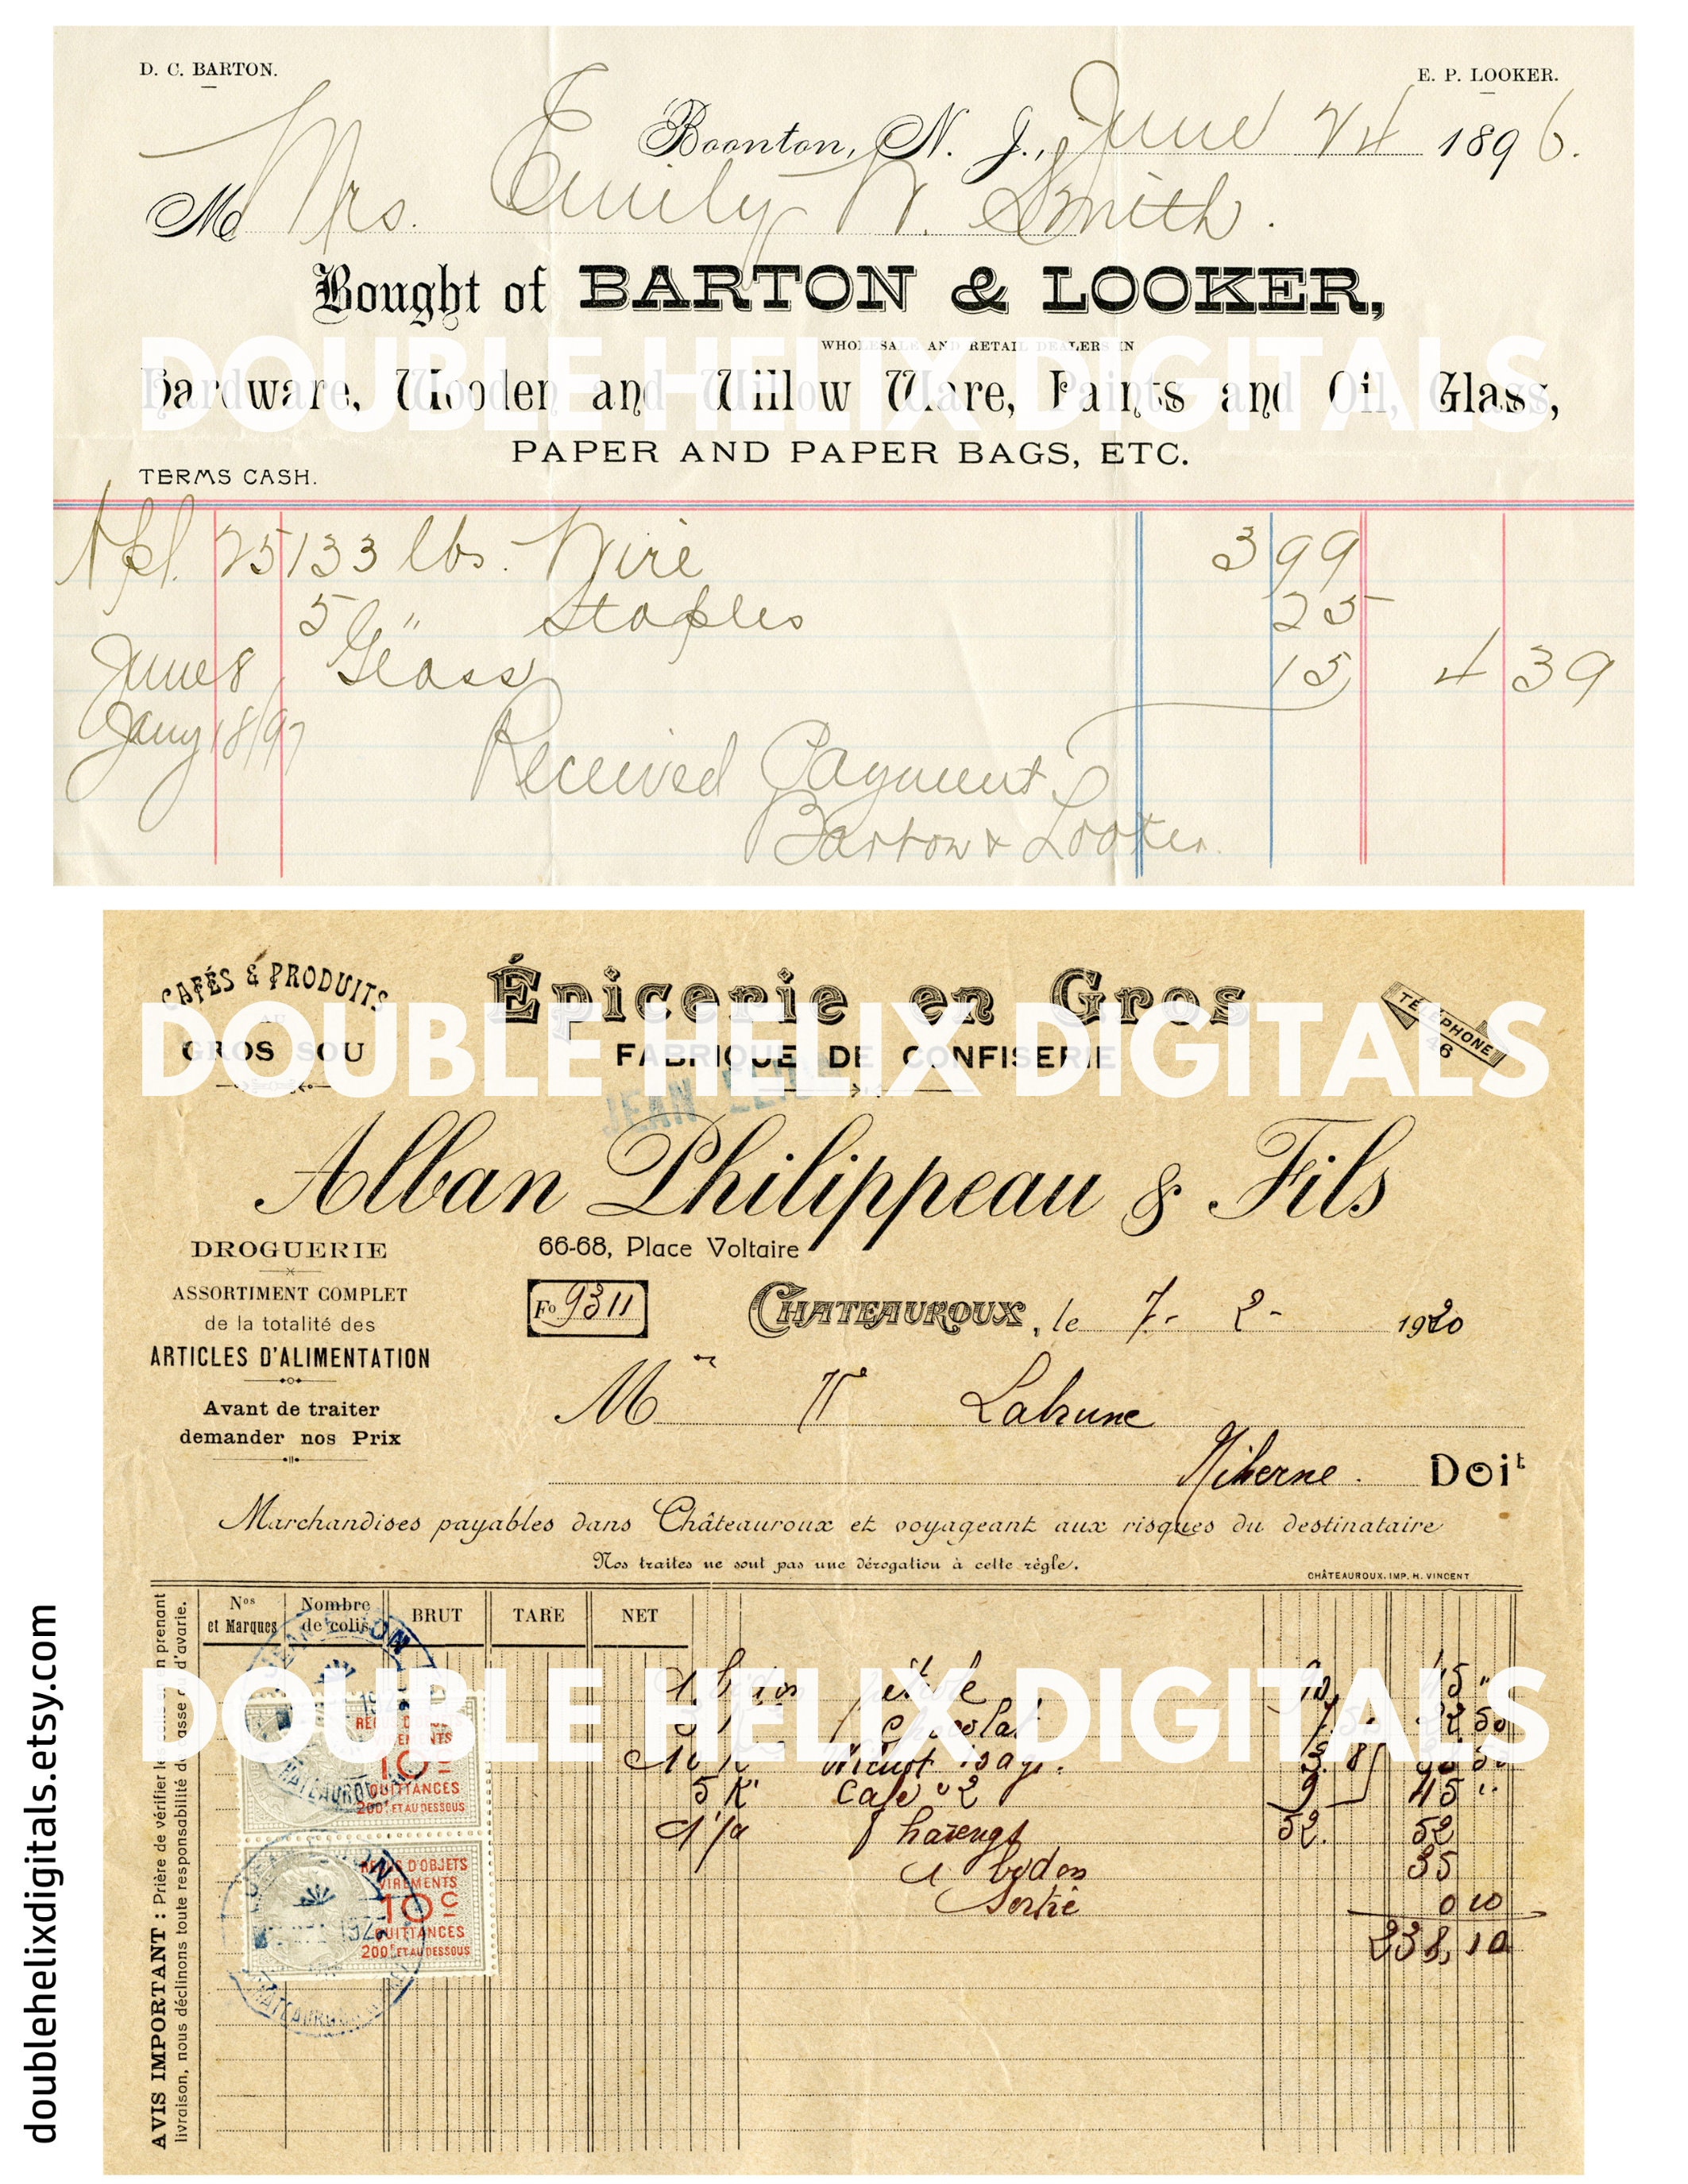 D. C. BARTON.
E. P. LOOKER.
Boonton, N. J., June 24 1896.
M Mrs. Emily W. Smith.
Bought of BARTON & LOOKER,
WHOLESALE AND RETAIL DEALERS IN
DOUBLE HELIX DIGITALS
Hardware, Wooden and Willow Ware, Paints and Oil, Glass,
PAPER AND PAPER BAGS, ETC.
TERMS CASH.
Apl. 25 133 lbs. Wire 3 99
5 " Staples 25
June 8 Glass 15 4 39
Jany 18/97 Received Payment
Barton & Looker.
CAFÉS & PRODUITS
AU
GROS SOU
Épicerie en Gros
TÉLÉPHONE
46
DOUBLE HELIX DIGITALS
FABRIQUE DE CONFISERIE
JEAN
Alban Philippeau & Fils
66-68, Place Voltaire
DROGUERIE
ASSORTIMENT COMPLET
de la totalité des
ARTICLES D'ALIMENTATION
Avant de traiter
demander nos Prix
Fo 9311
CHATEAUROUX, le 7- 2- 1920
M Labrune
Niherne. Doit
Marchandises payables dans Châteauroux et voyageant aux risques du destinataire
Nos traites ne sont pas une dérogation à cette règle.
CHÂTEAUROUX. IMP. H. VINCENT
Nos et Marques
Nombre de colis
BRUT
TARE
NET
DOUBLE HELIX DIGITALS
45 "
Chocolat
5 K Café 9 45 "
harengs 52. 52
1 bidon 35
0 10
238,10
10c
QUITTANCES
200F ET AU DESSOUS
REÇUS D'OBJETS
VIREMENTS
10c
QUITTANCES
200F ET AU DESSOUS
CHATEAUROUX
AVIS IMPORTANT : Prière de vérifier le
n prenant
livraison, nous déclinons toute responsabilité de
d'avarie.
doublehelixdigitals.etsy.com